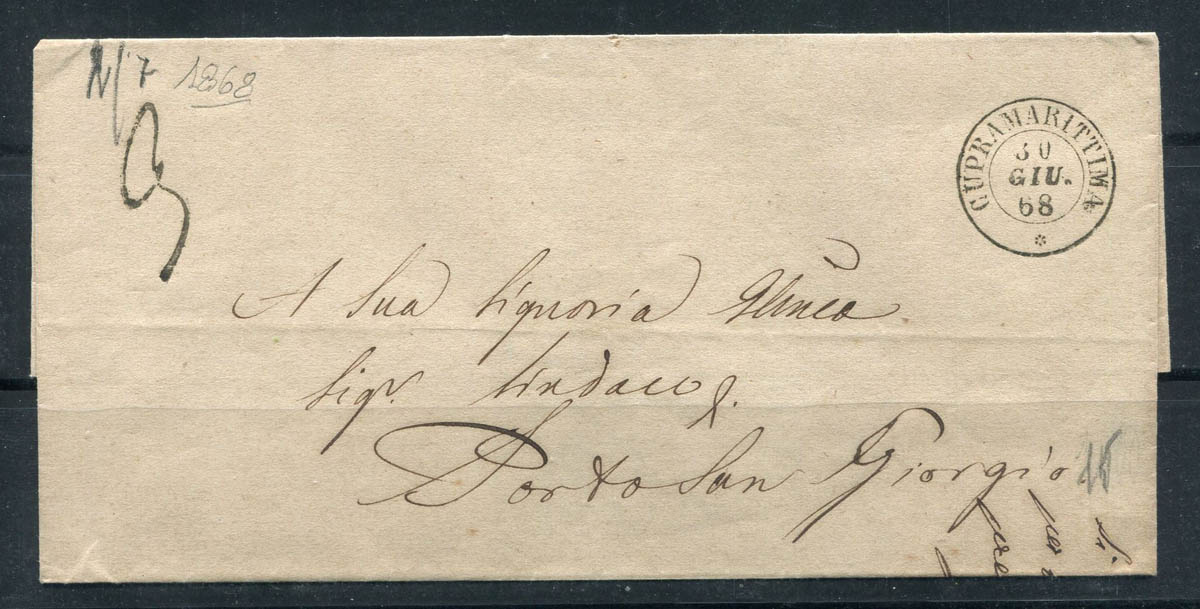 N/7 1868
CUPRAMARITTIMA
30
GIU.
68
A Sua Signoria
Sigr. Sindaco
Porto San Giorgio
15